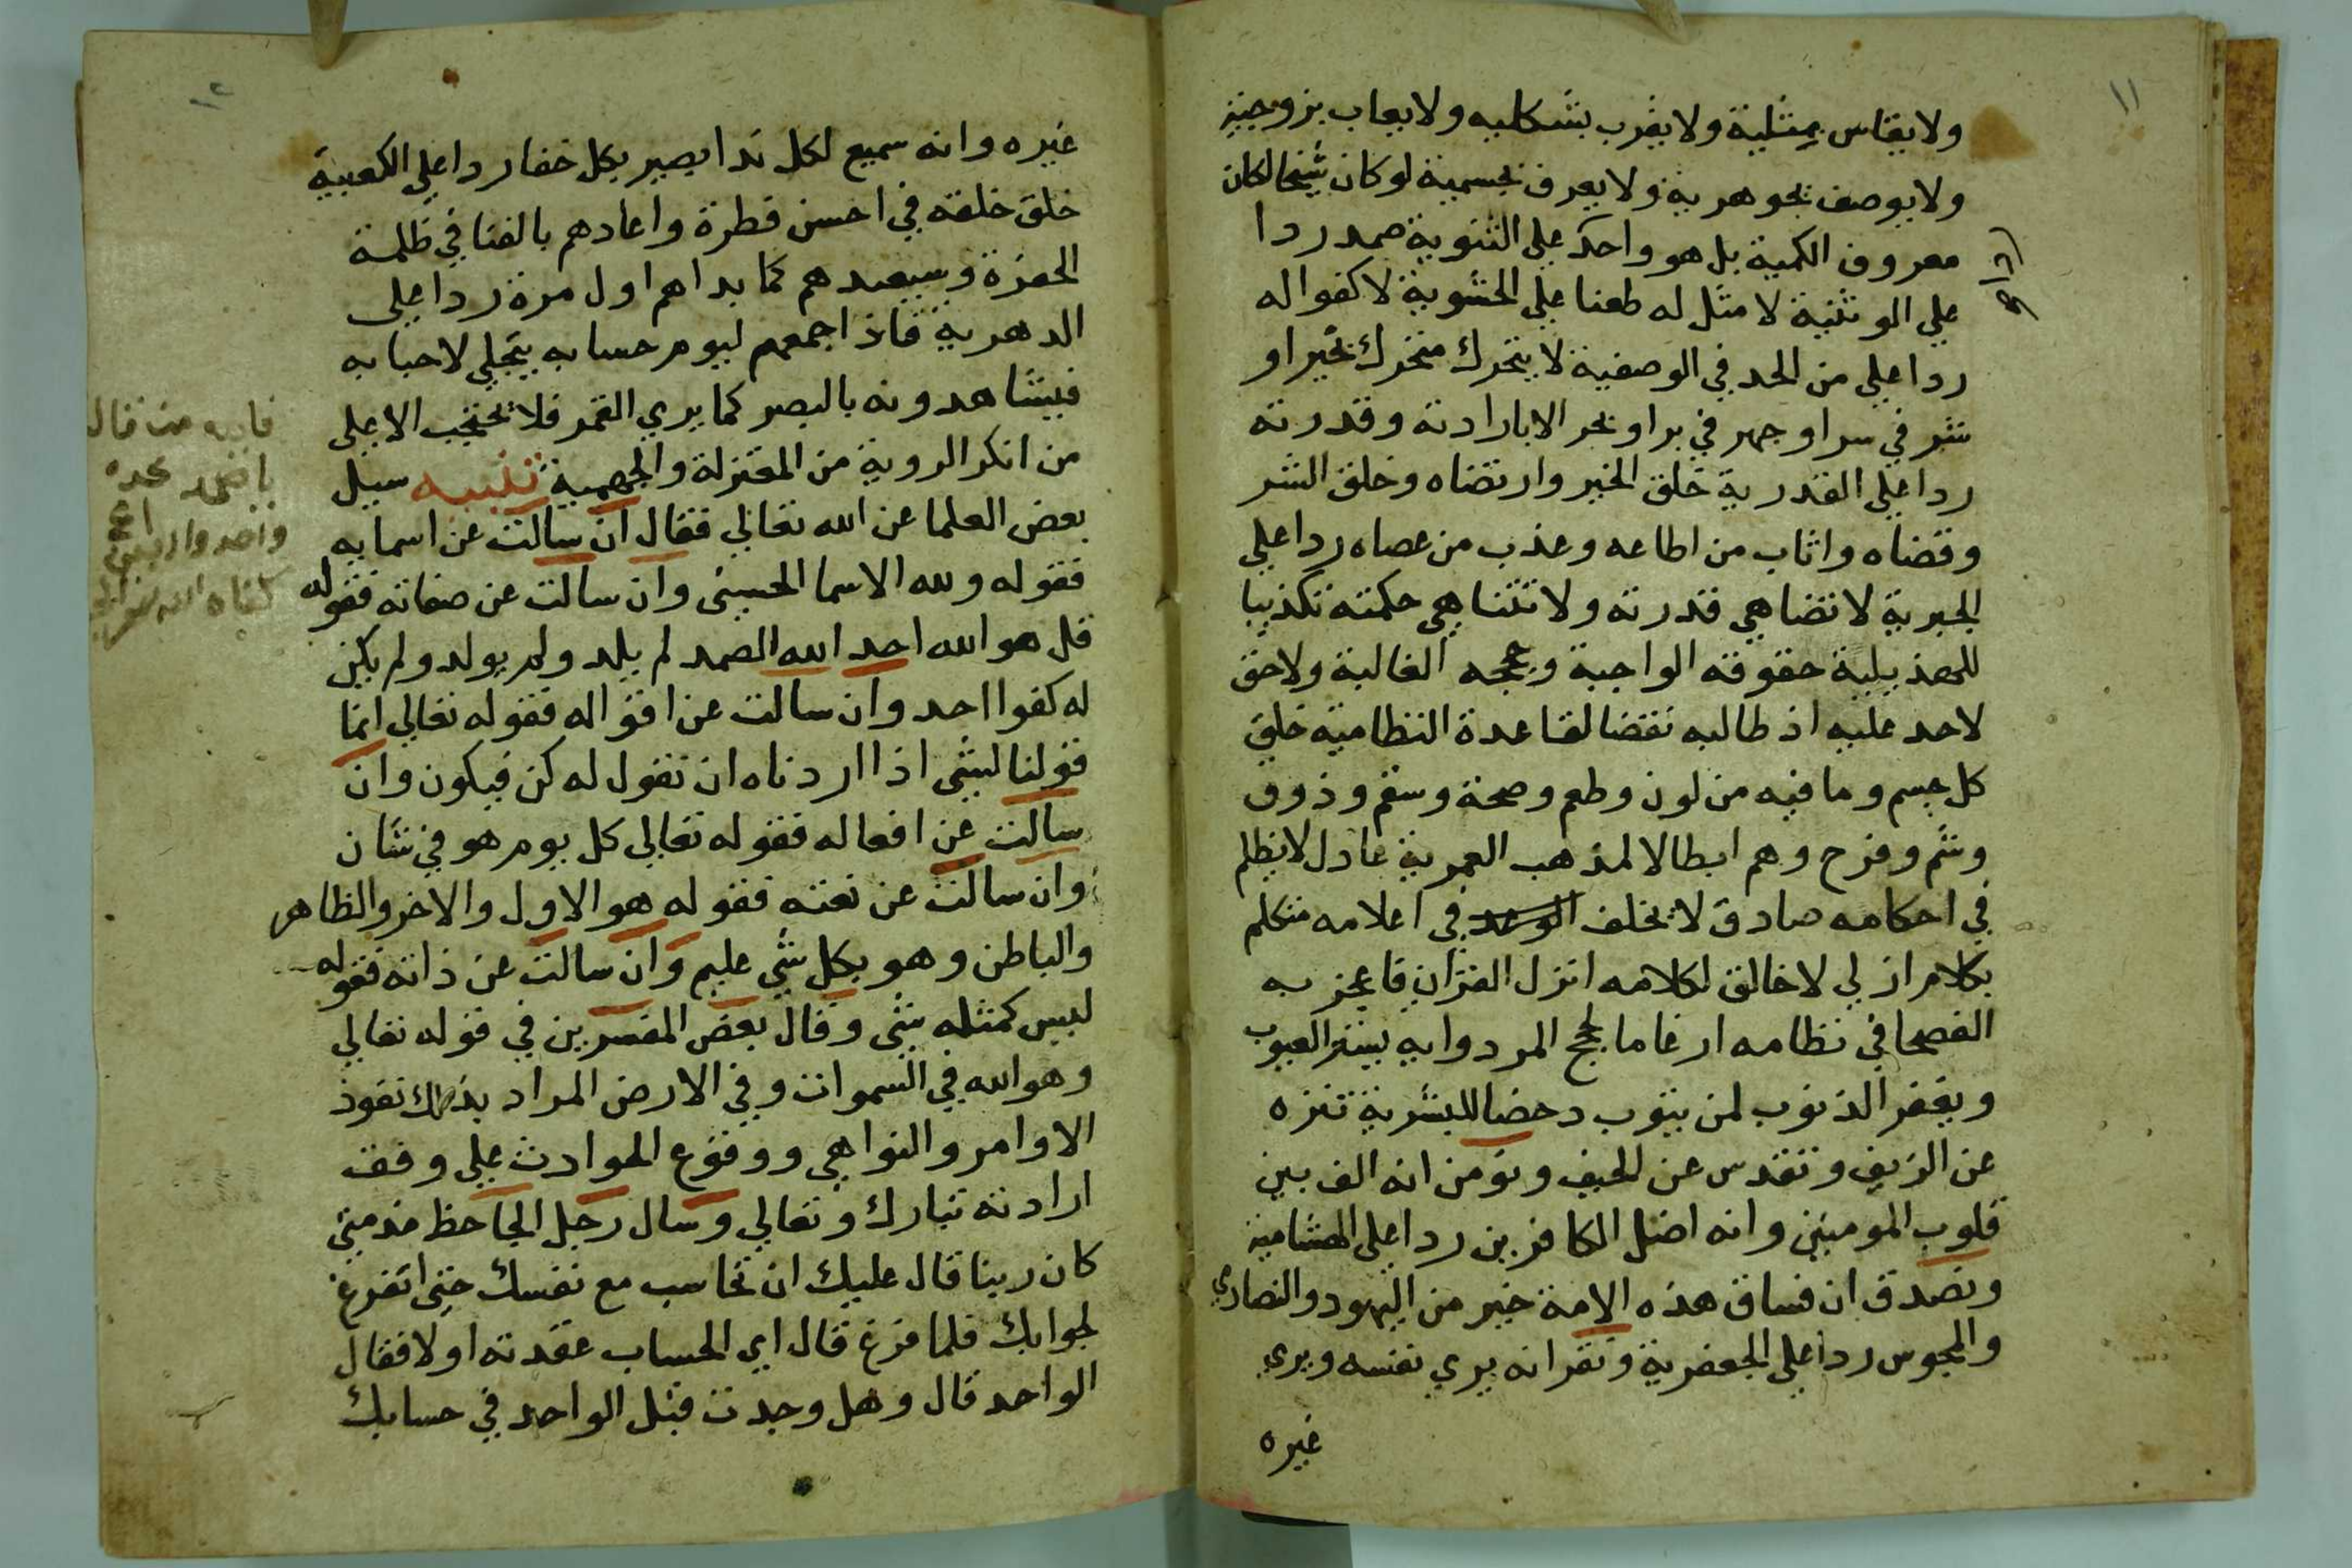 ١١
ولا يقاس بمثلية ولا يقرب بشكليه ولا يعاب بزوجية
ولا يوصف بجوهرية ولا يعرف بجسمية لو كان شيخا لكان
معروف الكمية بل هو واحد علي الثنوية صمد ردا
علي الوثنية لا مثل له طعنا علي الحشوية لا كفوا له
ردا علي من الحد في الوصفية لا يتحرك متحرك بخير او
شر في سر او جهر في بر او بحر الا بارادته وقدرته
ردا علي القدرية خلق الخير وارتضاه وخلق الشر
وقضاه واثاب من اطاعه وعذب من عصاه ردا علي
الجبرية لا تضاهي قدرته ولا تتناهي حكمته تكذيبا
للهذيلية حقوقه الواجبة وحججه الغالبة ولا حق
لاحد عليه اذ طالبه نقضا لقاعدة النظامية خلق
كل جسم وما فيه من لون وطعم وصحة وسقم وذوق
وشم وفرح وهم ابطالا لمذهب العمرية عادل لا يظلم
في احكامه صادق لا يخلف الوعد في اعلامه متكلم
بكلام ازلي لا خالق لكلامه انزل القران فاعجز به
الفصحا في نظامه ارغاما لحجج المردوايه يستر العيوب
ويغفر الذنوب لمن يتوب دحضا للبشرية تنزه
عن الزيف وتقدس عن الحيف ونومن انه الف بين
قلوب المومنين وانه اضل الكافرين ردا علي الهشامية
ونصدق ان فساق هذه الامة خير من اليهود والنصاري
والمجوس ردا علي الجعفرية ونقر انه يري نفسه ويري
غيره
١٢
غيره وانه سميع لكل ندا بصير بكل خفا ردا علي الكعبية
خلق خلقه في احسن فطرة واعادهم بالفنا في ظلمة
الحفرة وسيعيدهم كما بداهم اول مرة ردا علي
الدهرية فاذ اجمعهم ليوم حسابه يتجلي لاحبابه
فيشاهدونه بالبصر كما يري القمر فلا يحتجب الا علي
من انكر الروية من المعتزلة والجهمية تنبيه سيل
بعض العلما عن الله تعالي فقال ان سالت عن اسمايه
فقوله ولله الاسما الحسنى وان سالت عن صفاته فقوله
قل هو الله احد الله الصمد لم يلد ولم يولد ولم يكن
له كفوا احد وان سالت عن اقواله فقوله تعالي انما
قولنا لشي اذا اردناه ان نقول له كن فيكون وان
سالت عن افعاله فقوله تعالي كل يوم هو في شان
وان سالت عن نعته فقوله هو الاول والاخر والظاهر
والباطن وهو بكل شي عليم وان سالت عن ذاته فقوله
ليس كمثله شي وقال بعض المفسرين في قوله تعالي
وهو الله في السموات وفي الارض المراد بذلك نفوذ
الاوامر والنواهي ووقوع الحوادث علي وفق
ارادته تبارك وتعالي وسال رجل الجاحظ مذ متى
كان ربنا قال عليك ان تحاسب مع نفسك حتى اتفرغ
لجوابك فلما فرغ قال اي الحساب عقدته اولا فقال
الواحد قال وهل وجدت قبل الواحد في حسابك
فايده من قال
يا صمد عدده